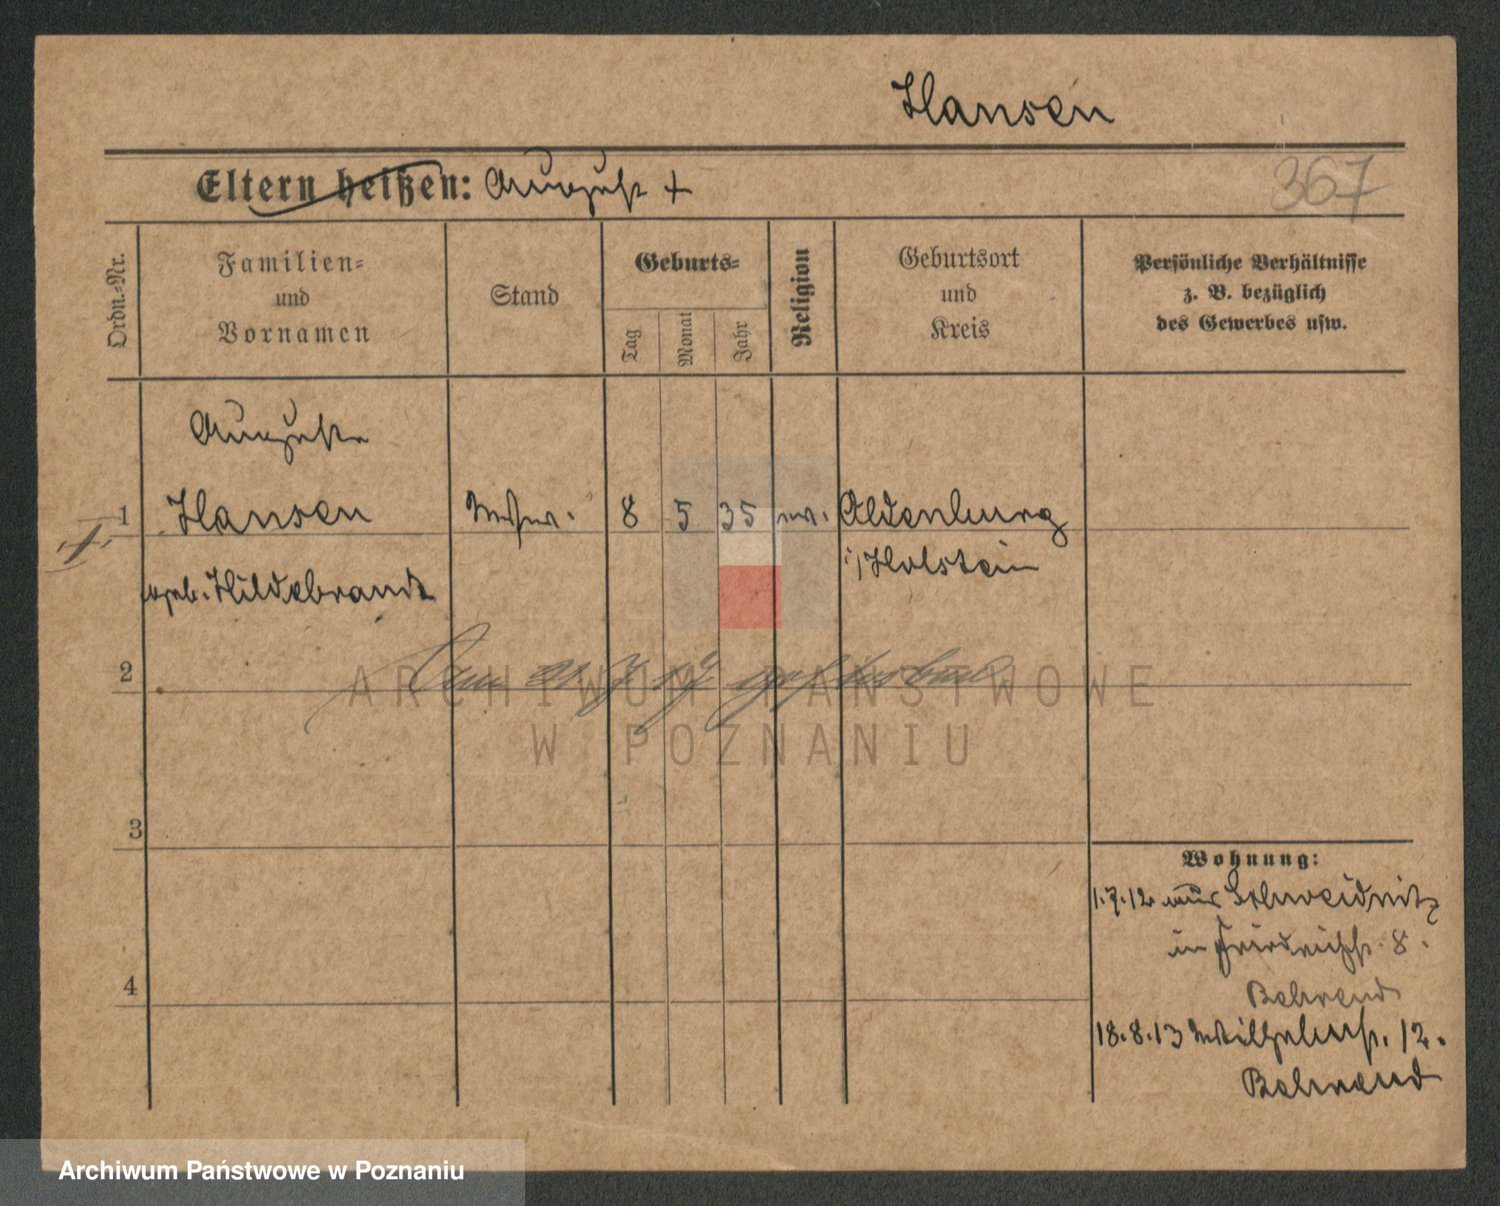 Hansen
Eltern heißen: August +
367
Ordn.-Nr.
Familien-
und
Vornamen
Stand
Geburts-
Tag
Monat
Jahr
Religion
Geburtsort
und
Kreis
Persönliche Verhältnisse
z. B. bezüglich
des Gewerbes usw.
Auguste
1 Hansen Witwe. 8 5 35 ev. Oldenburg
i/Holstein
geb. Hildebrandt
2
Am 21. 7. 19. gestorben
3
4
Wohnung:
1.7.12 aus Schweidnitz
in Friedrichstr. 8.
Behrend
18.8.13 Wilhelmstr. 12.
Behrend
ARCHIWUM PAŃSTWOWE
W POZNANIU
Archiwum Państwowe w Poznaniu